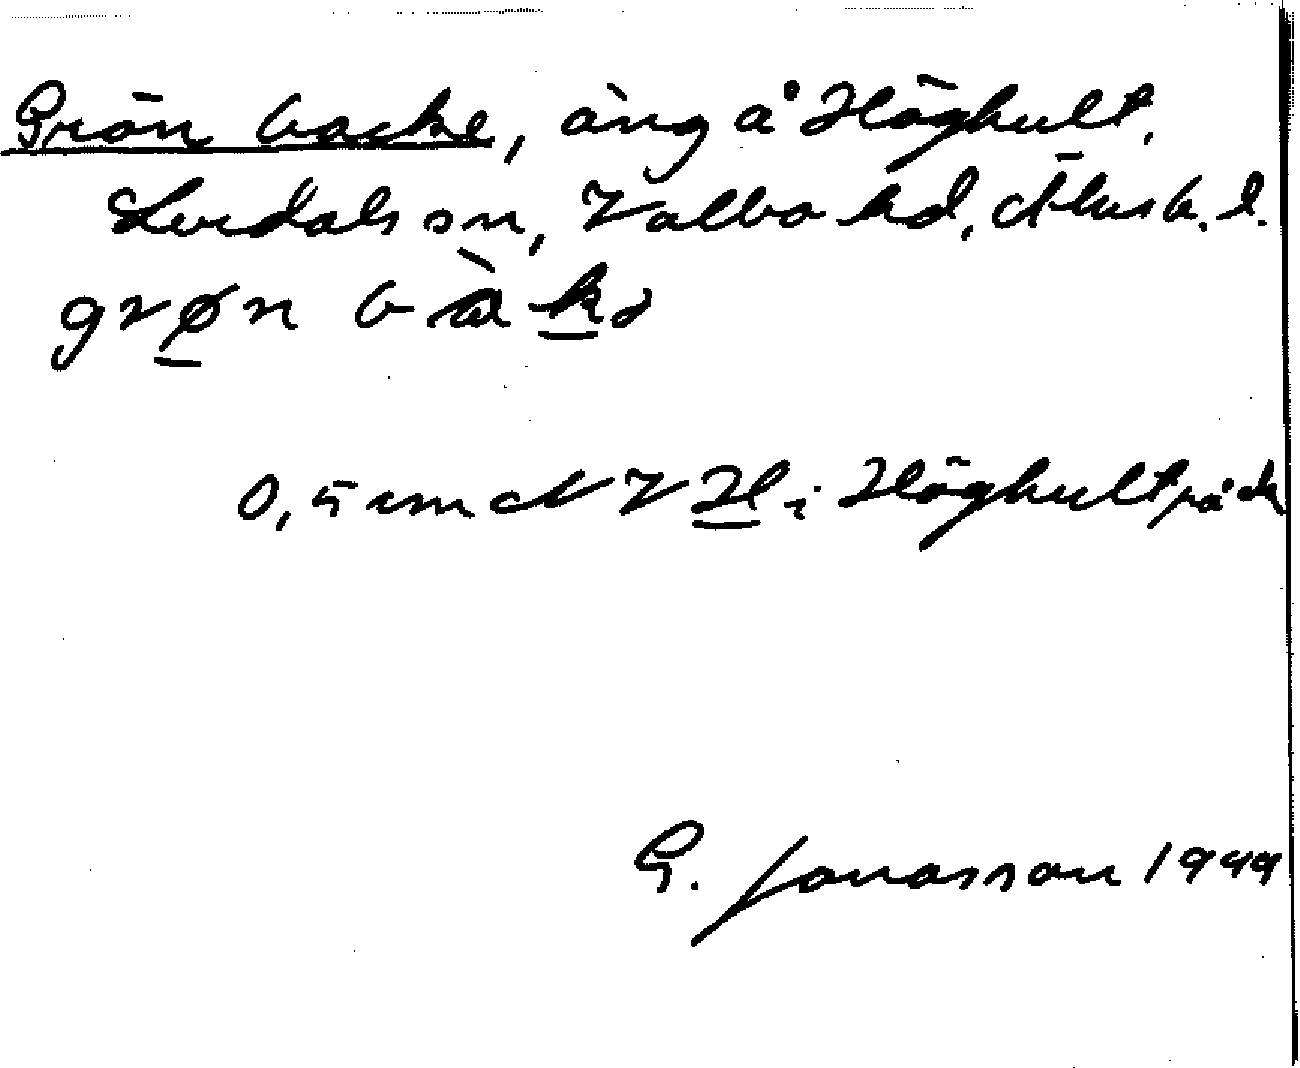 Grön backe, äng å Höghult,
Lerdals sn, Valbo hd, Älvsb. l.
grøn bàkə
0,5 cm NV H i Höghult på ek
G. Jonasson 1949